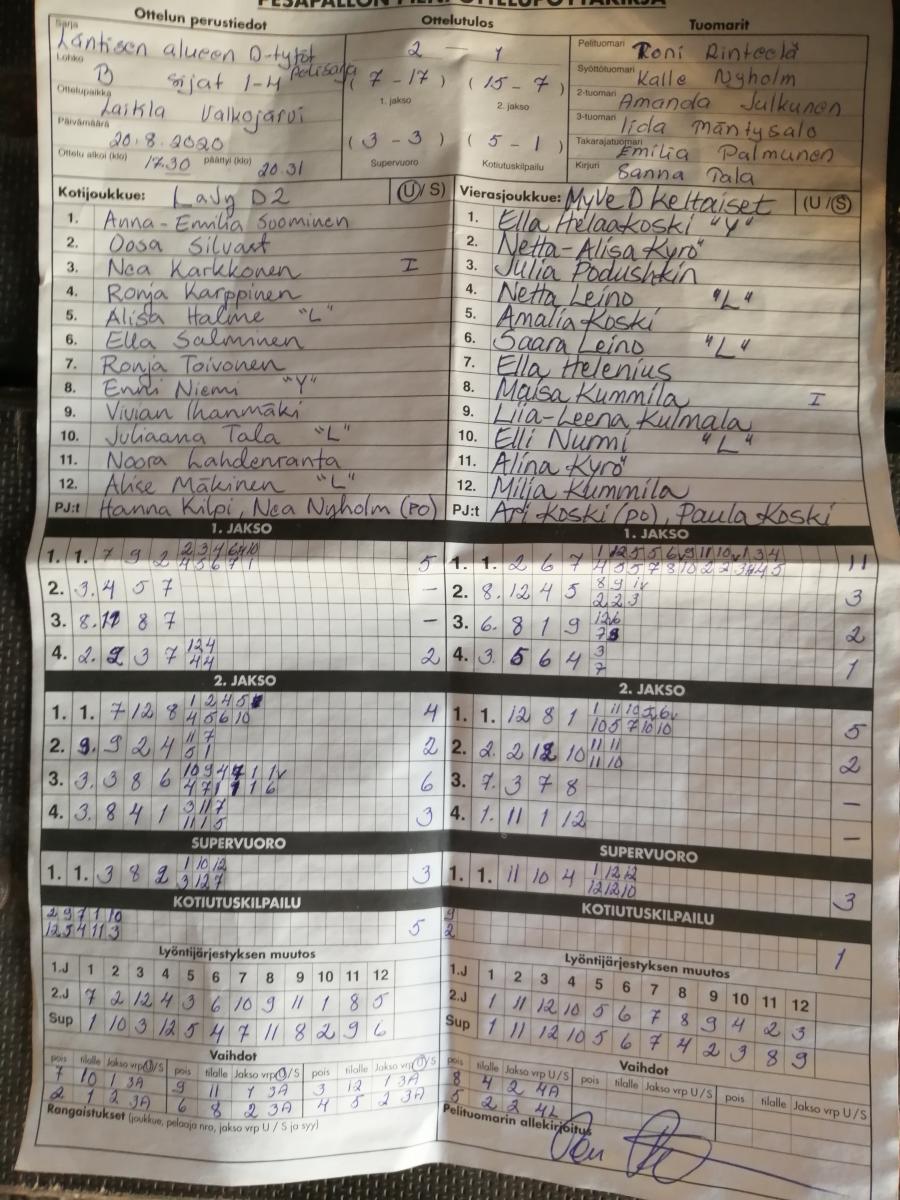 PESÄPALLON PIENPOTTELUPÖYTÄKIRJA
Ottelun perustiedot Ottelutulos Tuomarit
Sarja Läntisen alueen D-tytöt 2 – 1 Pelituomari Roni Rinteelä
Lohko B sijat 1-4 pelisarja ( 7 - 17 ) ( 15 - 7 ) Syöttötuomari Kalle Nyholm
Ottelupaikka Laikla Valkojärvi 1. jakso 2. jakso 2-tuomari Amanda Julkunen
Päivämäärä 20.8.2020 ( 3 - 3 ) ( 5 - 1 ) 3-tuomari Iida Mäntysalo
Ottelu alkoi (klo) 17.30 päättyi (klo) 20.31 Supervuoro Kotiutuskilpailu Takarajatuomari Emilia Palmunen
Kirjuri Sanna Tala
Kotijoukkue: LaVy D2 (U/S) Vierasjoukkue: MyVe D keltaiset (U/S)
1. Anna-Emilia Suominen 1. Ella Helaakoski "Y"
2. Oosa Silvast 2. Netta-Alisa Kyrö
3. Nea Karkkonen I 3. Julia Podushkin
4. Ronja Karppinen 4. Netta Leino "L"
5. Alisa Halme "L" 5. Amalia Koski
6. Ella Salminen 6. Saara Leino "L"
7. Ronja Toivonen 7. Ella Helenius
8. Enni Niemi "Y" 8. Maisa Kummila I
9. Vivian Ihanmäki 9. Liia-Leena Kulmala
10. Juliaana Tala "L" 10. Elli Nurmi "L"
11. Noora Lahdenranta 11. Alina Kyrö
12. Alise Mäkinen "L" 12. Milja Kummila
PJ:t Hanna Kilpi, Nea Nyholm (PO) PJ:t Ari Koski (PO), Paula Koski
1. JAKSO 1. JAKSO
1. 1. 7 9 2 5 1. 1. 2 6 7 11
2. 3. 4 5 7 – 2. 8. 12 4 5 8 9 iv 3
2 2 3
3. 8. 8 7 – 3. 6. 8 1 9 2
4. 2. 2 3 7 12 4 2 4. 3. 5 6 4 3 1
4 4 7
2. JAKSO 2. JAKSO
1. 1. 7 12 8 1 2 4 5 4 1. 1. 12 8 1 1 11 10 5 6v 5
4 5 6 10 10 5 7 10 10
2. 9. 9 2 4 11 7 2 2. 2. 2 12 10 11 11 2
5 1 11 10
3. 3. 3 8 6 6 3. 7. 3 7 8 –
4. 3. 8 4 1 3 11 7 3 4. 1. 11 1 12 –
11 1 5
SUPERVUORO SUPERVUORO
1. 1. 3 8 2 1 10 12 3 1. 1. 11 10 4 1 12 12 3
3 12 7 12 12 10
KOTIUTUSKILPAILU KOTIUTUSKILPAILU
2 9 7 1 10 5 9 1
12 5 4 11 3 2
Lyöntijärjestyksen muutos Lyöntijärjestyksen muutos
1.J 1 2 3 4 5 6 7 8 9 10 11 12 1.J 1 2 3 4 5 6 7 8 9 10 11 12
2.J 7 2 12 4 3 6 10 9 11 1 8 5 2.J 1 11 12 10 5 6 7 8 9 4 2 3
Sup 1 10 3 12 5 4 7 11 8 2 9 6 Sup 1 11 12 10 5 6 7 4 2 3 8 9
Vaihdot Vaihdot
pois tilalle Jakso vrp U/S pois tilalle Jakso vrp U/S pois tilalle Jakso vrp U/S pois tilalle Jakso vrp U/S pois tilalle Jakso vrp U/S pois tilalle Jakso vrp U/S
7 10 1 3A 9 11 1 3A 3 12 1 3A 8 4 2 4A
2 1 2 3A 6 8 2 3A 4 5 2 3A 5 2 2 4L
Rangaistukset (joukkue, pelaaja nro, jakso vrp U / S ja syy) Pelituomarin allekirjoitus